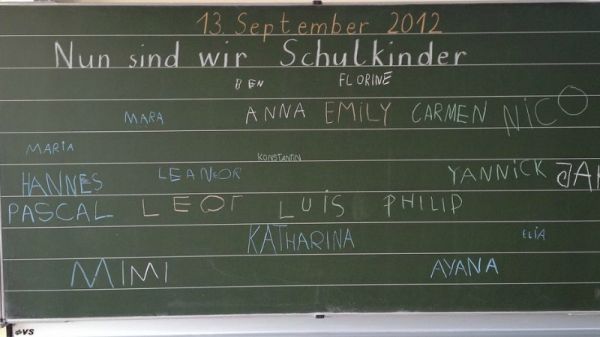 13. September 2012
Nun sind wir Schulkinder
BEN FLORINE
MARA ANNA EMILY CARMEN NICO
MARIA KONSTANTIN
HANNES LEANOR YANNICK JAN
PASCAL LEOT LUIS PHILIP
KATHARINA ELIA
MIMI AYANA
VS